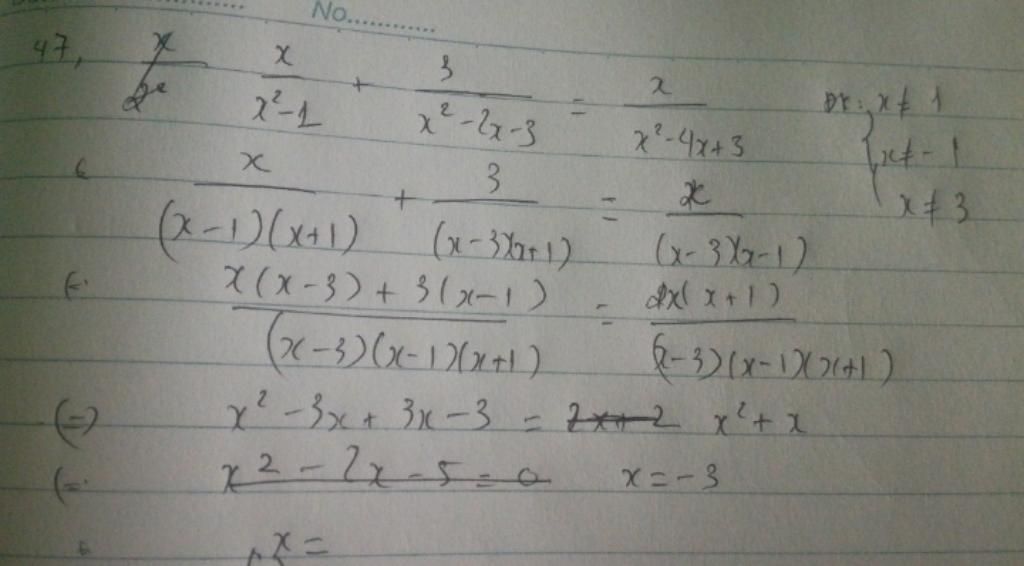 No............
47, x/(x²-1) + 3/(x²-2x-3) = x/(x²-4x+3) x ≠ 1
x ≠ -1
x/((x-1)(x+1)) + 3/((x-3)(x+1)) = x/((x-3)(x-1)) x ≠ 3
(x(x-3) + 3(x-1))/((x-3)(x-1)(x+1)) = x(x+1)/((x-3)(x-1)(x+1))
(=) x² - 3x + 3x - 3 = 2x+2 x² + x
x² - 2x - 5 = 0 x = -3
x =